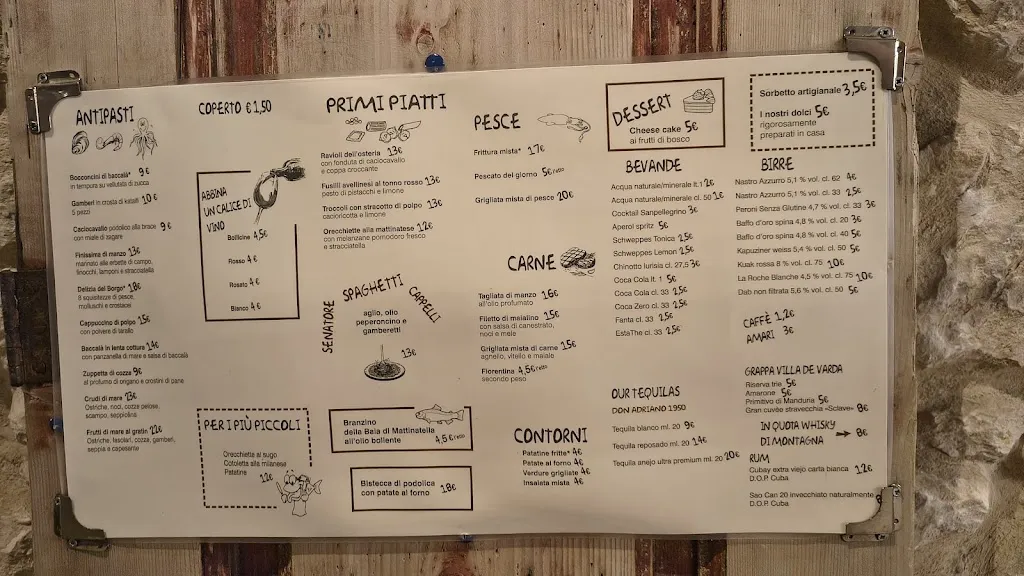 ANTIPASTI
Bocconcini di baccalà* 9€
in tempura su vellutata di zucca
Gamberi in crosta di kataifi 10€
5 pezzi
Caciocavallo podolico alla brace 9€
con miele di sagare
Finissima di manzo 13€
marinato alle erbette di campo,
finocchi, lamponi e stracciatella
Delizia del Borgo* 18€
8 squisitezze di pesce,
molluschi e crostacei
Cappuccino di polpo 15€
con polvere di tarallo
Baccalà in lenta cottura 14€
con panzanella di mare e salsa di baccalà
Zuppetta di cozza 9€
al profumo di origano e crostini di pane
Crudi di mare 23€
Ostriche, noci, cozze pelose,
scampo, seppiolina
Frutti di mare al gratin 22€
Ostriche, fasolari, cozza, gamberi,
seppia e capesante
COPERTO €1,50
ABBINA
UN CALICE DI
VINO
Bollicine 4,5€
Rosso 4€
Rosato 4€
Bianco 4€
PER I PIÙ PICCOLI
Orecchiette al sugo
Cotoletta alla milanese
Patatine
12€
PRIMI PIATTI
Ravioli dell'osteria 13€
con fonduta di caciocavallo
e coppa croccante
Fusilli avellinesi al tonno rosso 13€
pesto di pistacchi e limone
Troccoli con stracotto di polpo 13€
cacioricotta e limone
Orecchiette alla mattinatese 12€
con melanzane pomodoro fresco
e stracciatella
SPAGHETTI
SENATORE
CAPPELLI
aglio, olio
peperoncino e
gamberetti
13€
Branzino
della Baia di Mattinatella
all'olio bollente 4,5€/etto
Bistecca di podolica
con patata al forno 18€
PESCE
Frittura mista* 17€
Pescato del giorno 5€/etto
Grigliata mista di pesce 20€
CARNE
Tagliata di manzo 16€
all'olio profumato
Filetto di maialino 15€
con salsa di canestrato,
noci e mele
Grigliata mista di carne 15€
agnello, vitello e maiale
Fiorentina 4,5€/etto
secondo peso
CONTORNI
Patatine fritte* 4€
Patate al forno 4€
Verdure grigliate 4€
Insalata mista 4€
DESSERT
Cheese cake 5€
ai frutti di bosco
BEVANDE
Acqua naturale/minerale lt.1 2€
Acqua naturale/minerale cl. 50 1€
Cocktail Sanpellegrino 3€
Aperol spritz 5€
Schweppes Tonica 2,5€
Schweppes Lemon 2,5€
Chinotto lurisia cl. 27,5 3€
Coca Cola lt. 1 5€
Coca Cola cl. 33 2,5€
Coca Zero cl. 33 2,5€
Fanta cl. 33 2,5€
EstaThe cl. 33 2,5€
OUR TEQUILAS
DON ADRIANO 1950
Tequila blanco ml. 20 9€
Tequila reposado ml. 20 14€
Tequila anejo ultra premium ml. 20 20€
Sorbetto artigianale 3,5€
I nostri dolci 5€
rigorosamente
preparati in casa
BIRRE
Nastro Azzurro 5,1 % vol. cl. 62 4€
Nastro Azzurro 5,1 % vol. cl. 33 2,5€
Peroni Senza Glutine 4,7 % vol. cl. 33 3€
Baffo d'oro spina 4,8 % vol. cl. 20 3€
Baffo d'oro spina 4,8 % vol. cl. 40 5€
Kapuziner weiss 5,4 % vol. cl. 50 5€
Kuak rossa 8 % vol. cl. 75 10€
La Roche Blanche 4,5 % vol. cl. 75 10€
Dab non filtrata 5,6 % vol. cl. 50 5€
CAFFÈ 1,2€
AMARI 3€
GRAPPA VILLA DE VARDA
Riserva trie 5€
Amarone 5€
Primitivo di Manduria 5€
Gran cuvée stravecchia «Sclave» 8€
IN QUOTA WHISKY
DI MONTAGNA 8€
RUM
Cubay extra viejo carta bianca 12€
D.O.P. Cuba
Sao Can 20 invecchiato naturalmente
D.O.P. Cuba